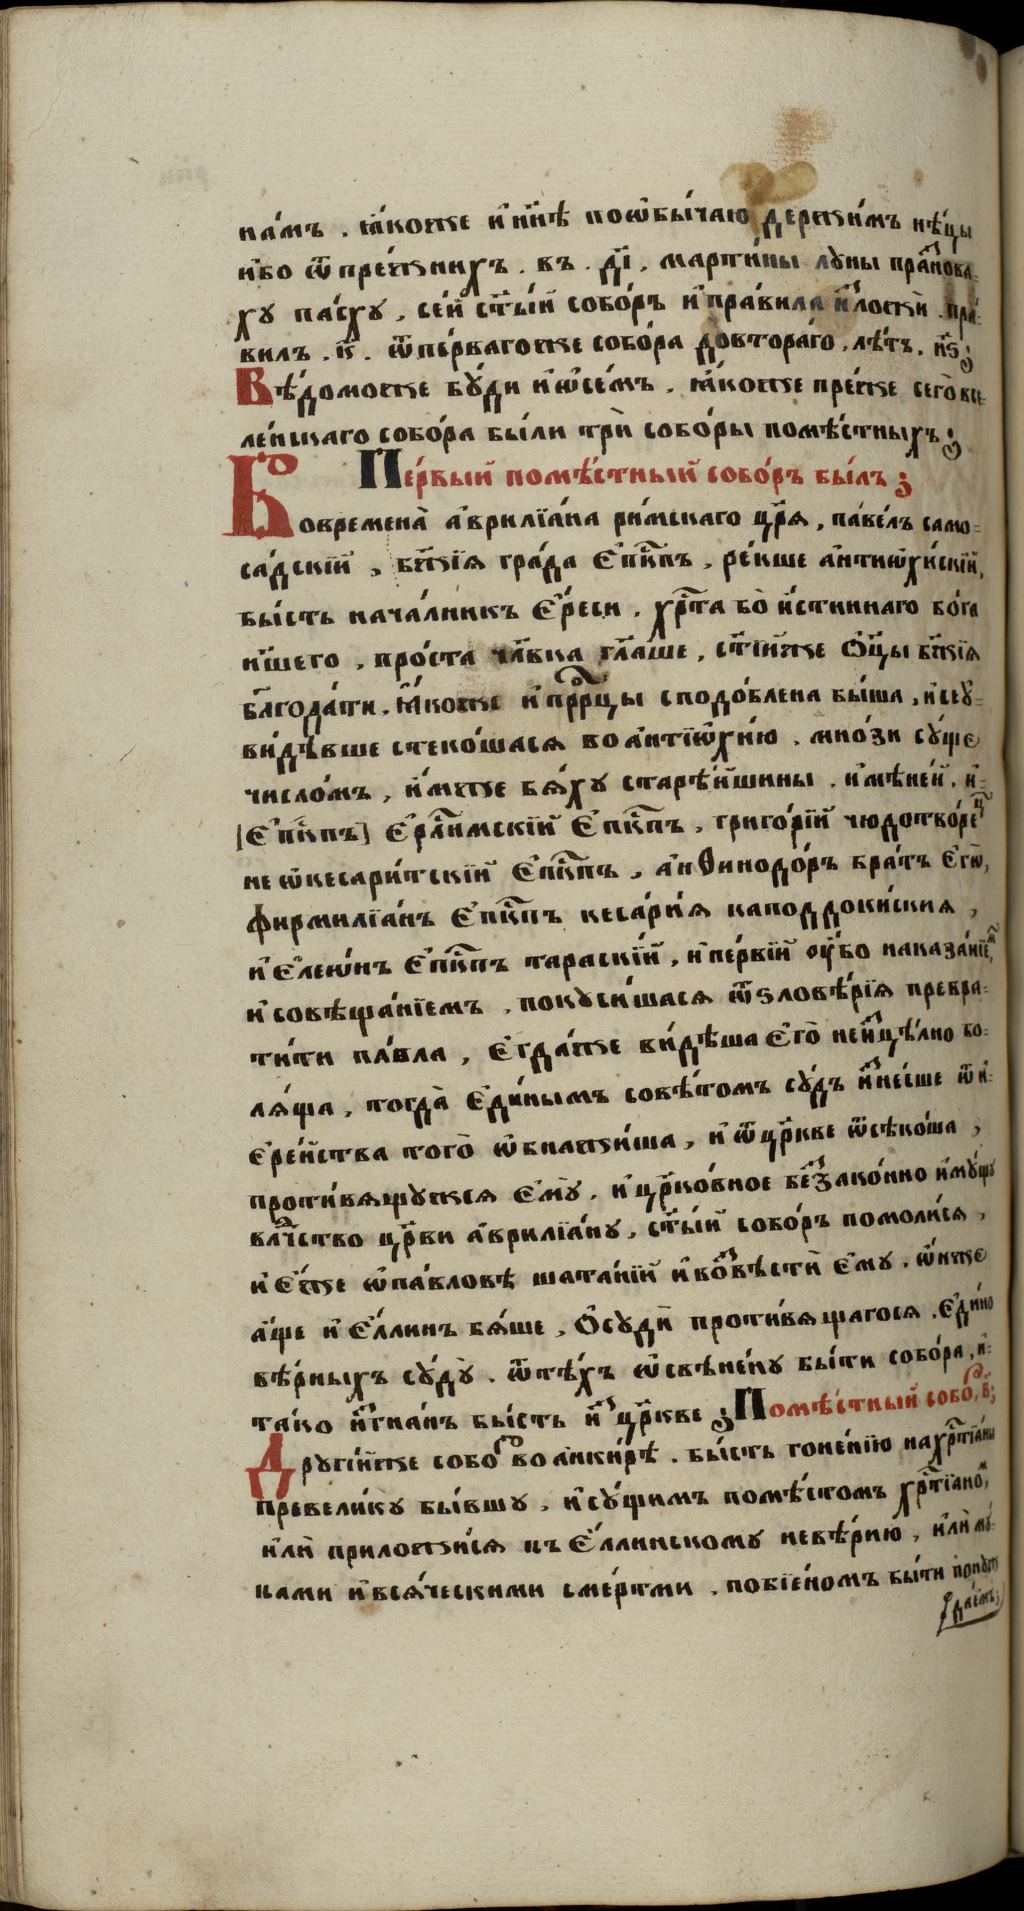 на́мъ . ꙗ́коже и҆ нн҃ѣ поѡ҆бы́чаю держи́мъ нѣ́цы
и҆бо ѿ пре́жнихъ . въ . д҃і . марти́ны луны пра́зⷣнова-
ху па́сху , се́й ст҃ы́й собо́ръ и҆ пра́вила и҆зложѝ . пра́-
вилъ . к҃ . ѿ пе́рвагоже собо́ра довтора́го . лѣ́тъ .
Вѣ́доможе бу́ди и҆ ѡ҆ се́мъ . ꙗ҆́коже пре́же сего̀ все-
ле́нскаго собо́ра бы́ли трѝ собо́ры помѣ́стныхъ ;
Пе́рвый помѣ́стный собо́ръ бы́лъ ;
Во времена̀ а҆врилїа́на ри́мскаго цр҃ѧ̀ , па́велъ само-
са́дскїй , бж҃їѧ гра́да Е҆пⷭ҇кпъ , ре́кше а҆нтиѡ҆хи́скїй ,
бы́сть нача́лникъ Е҆́реси . хрⷭ҇та̀ бо и҆́стиннаго бо́га
на́шего , про́ста чл҃вка гл҃аше , ст҃і́иже Ѻ҆ц҃ы бж҃їѧ
бл҃года́ти . ꙗ҆́коже и҆ прⷪ҇ро́цы сподо́блена бы́ша , и҆ оу҆-
ви́дѣвше стеко́шасѧ во а҆нтїѡ҆хи́ю . мно́зи су́ще
число́мъ , и҆́мже бѧ́ху старѣ́йшины . и҆мѣне́й . и҆-
[Е҆пⷭ҇кпъ] Е҆рⷭ҇ли́мскїй Е҆пⷭ҇кпъ , григо́рїй чюдотво́рецъ
не ѡ҆кесари́тскїй Е҆пⷭ҇кпъ , а҆нѳинодо́ръ бра́тъ Е҆гѡ̀ ,
фирмилїа́нъ Е҆пⷭ҇кпъ кесарі́ѧ каподдоки́скиѧ ,
и҆ Е҆леѡ́нъ Е҆пⷭ҇кпъ тараскі́й , и҆ пе́рвїй оу҆́бо наказа́нїемъ ,
и҆ совѣща́нїемъ , покуси́шасѧ ѿ ѕловѣ́рїѧ превра-
ти́ти па́вла , Е҆гда́же ви́дѣша Е҆го̀ неи҆сцѣ́лно бо-
лѧ́ща , тогда̀ Е҆ди́нымъ совѣ́томъ су́дъ и҆зне́сше ѿ и҆-
Е҆ре́йства того̀ ѡ҆бнажи́ша , и҆ ѿ цр҃кве ѿсѣко́ша ,
проти́вѧщужесѧ Е҆мꙋ̀ . и҆ цр҃ко́вное беззако́нно и҆му́щу
вла́ство цр҃кви а҆врилїа́ну , ст҃ы́й собо́ръ помоли́сѧ ,
и҆ Е҆́же ѡ҆ па́вловѣ шата́нїй и҆ возвѣстѝ Е҆му . ѡ҆́ниже
а҆́ще и҆ Е҆́ллинъ бѧ́ше , Ѻ҆судѝ проти́вѧщагосѧ . Е҆ди́но
вѣ́рныхъ су́дꙋ̀ . ѿ тѣ́хъ ѡ҆свѣне́ну бы́ти собо́ра , и҆-
та́ко и҆згна́нъ бы́сть и҆зъ цр҃кве ; Помѣ́стный собо́ръ , в҃ ;
Другі́йже собо́ръ во а҆нки́рѣ . бы́сть гоне́нїю на хрⷭ҇тїа́ны
превели́ку бы́вшу , и҆ су́щимъ помѣ́стомъ хрⷭ҇тїано́мъ
и҆лѝ приложи́сѧ къ Е҆́ллинскому невѣ́рию , и҆лѝ му́-
ками и҆ всѧ́ческими сме́ртми . побїе́номъ бы́ти